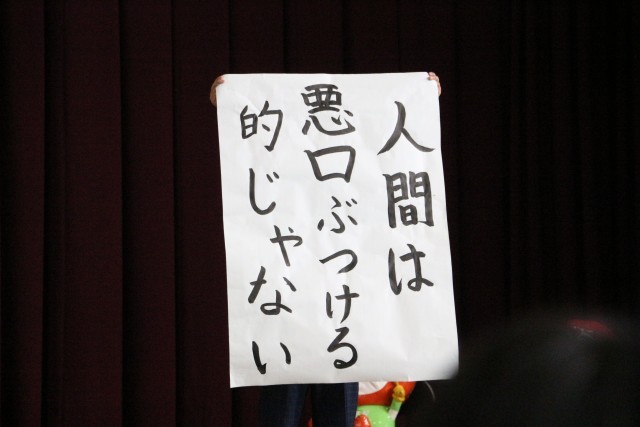 人間は
悪口ぶつける
的じゃない